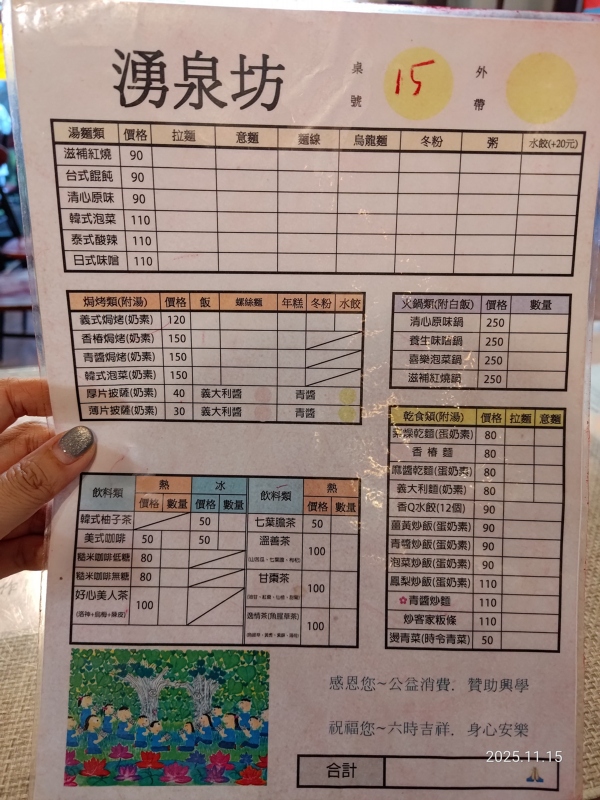 湧泉坊
桌號 15 外帶
湯麵類 價格 拉麵 意麵 麵線 烏龍麵 冬粉 粥 水餃(+20元)
滋補紅燒 90
台式餛飩 90
清心原味 90
韓式泡菜 110
泰式酸辣 110
日式味噌 110
焗烤類(附湯) 價格 飯 螺絲麵 年糕 冬粉 水餃
義式焗烤(奶素) 120
香椿焗烤(奶素) 150
青醬焗烤(奶素) 150
韓式泡菜(奶素) 150
厚片披薩(奶素) 40 義大利醬 青醬
薄片披薩(奶素) 30 義大利醬 青醬
火鍋類(附白飯) 價格 數量
清心原味鍋 250
養生味噌鍋 250
喜樂泡菜鍋 250
滋補紅燒鍋 250
乾食類(附湯) 價格 拉麵 意麵
炸燥乾麵(蛋奶素) 80
香椿麵 80
麻醬乾麵(蛋奶素) 80
義大利麵(奶素) 80
香Q水餃(12個) 90
薑黃炒飯(蛋奶素) 90
青醬炒飯(蛋奶素) 90
泡菜炒飯(蛋奶素) 90
鳳梨炒飯(蛋奶素) 110
青醬炒麵 110
炒客家粄條 110
燙青菜(時令青菜) 50
飲料類 熱 冰
價格 數量 價格 數量
韓式柚子茶 50
美式咖啡 50 50
糙米咖啡低糖 80
糙米咖啡無糖 80
好心美人茶 100
(洛神+烏梅+陳皮)
飲料類 熱
價格 數量
七葉膽茶 50
溫善茶 100
甘棗茶 100
逸情茶(魚腥草茶) 100
感恩您~公益消費．贊助興學
祝福您~六時吉祥．身心安樂
合計
2025.11.15